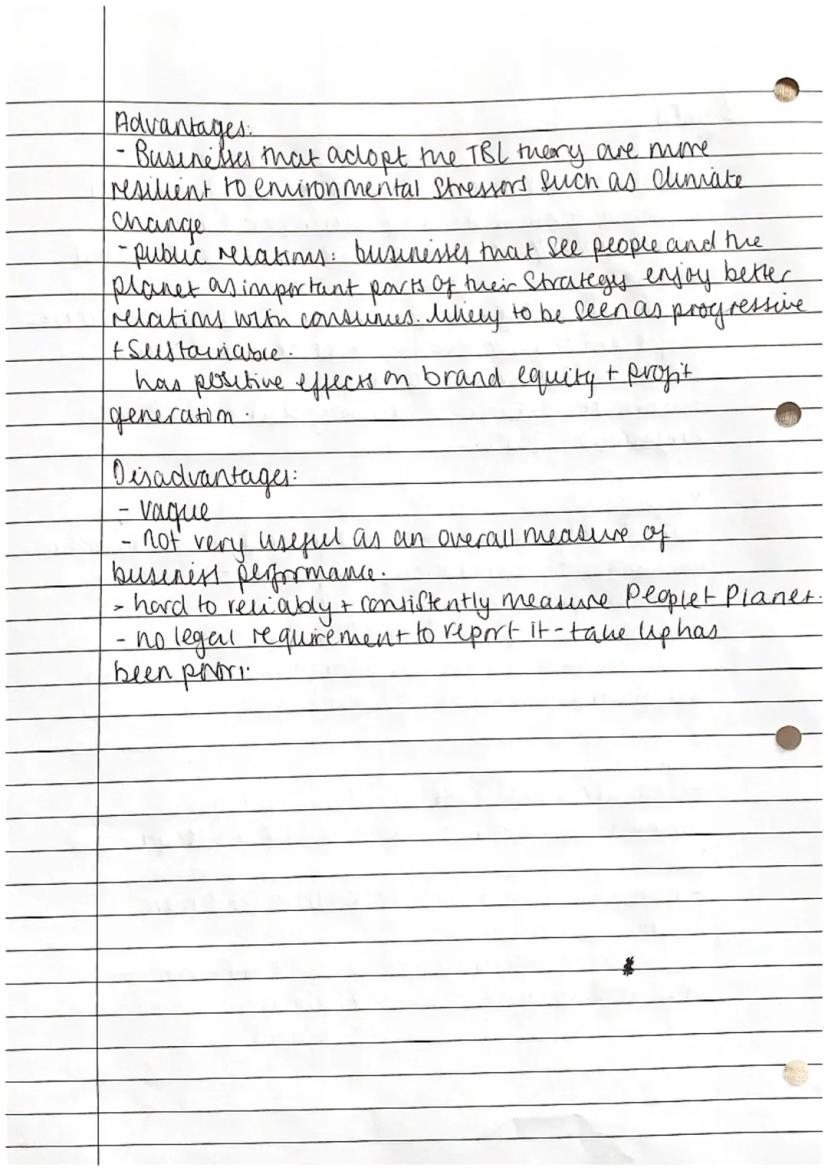 Advantages:
- Businesses that adopt the TBL theory are more
resilient to environmental stressors such as climate
change
- public relations: businesses that see people and the
planet as important parts of their strategy enjoy better
relations with consumers. likely to be seen as progressive
+ sustainable.
has positive effects on brand equity + profit
generation.
Disadvantages:
- vague
- not very useful as an overall measure of
business performance.
- hard to reliably + consistently measure People + Planet.
- no legal requirement to report it - take up has
been poor.